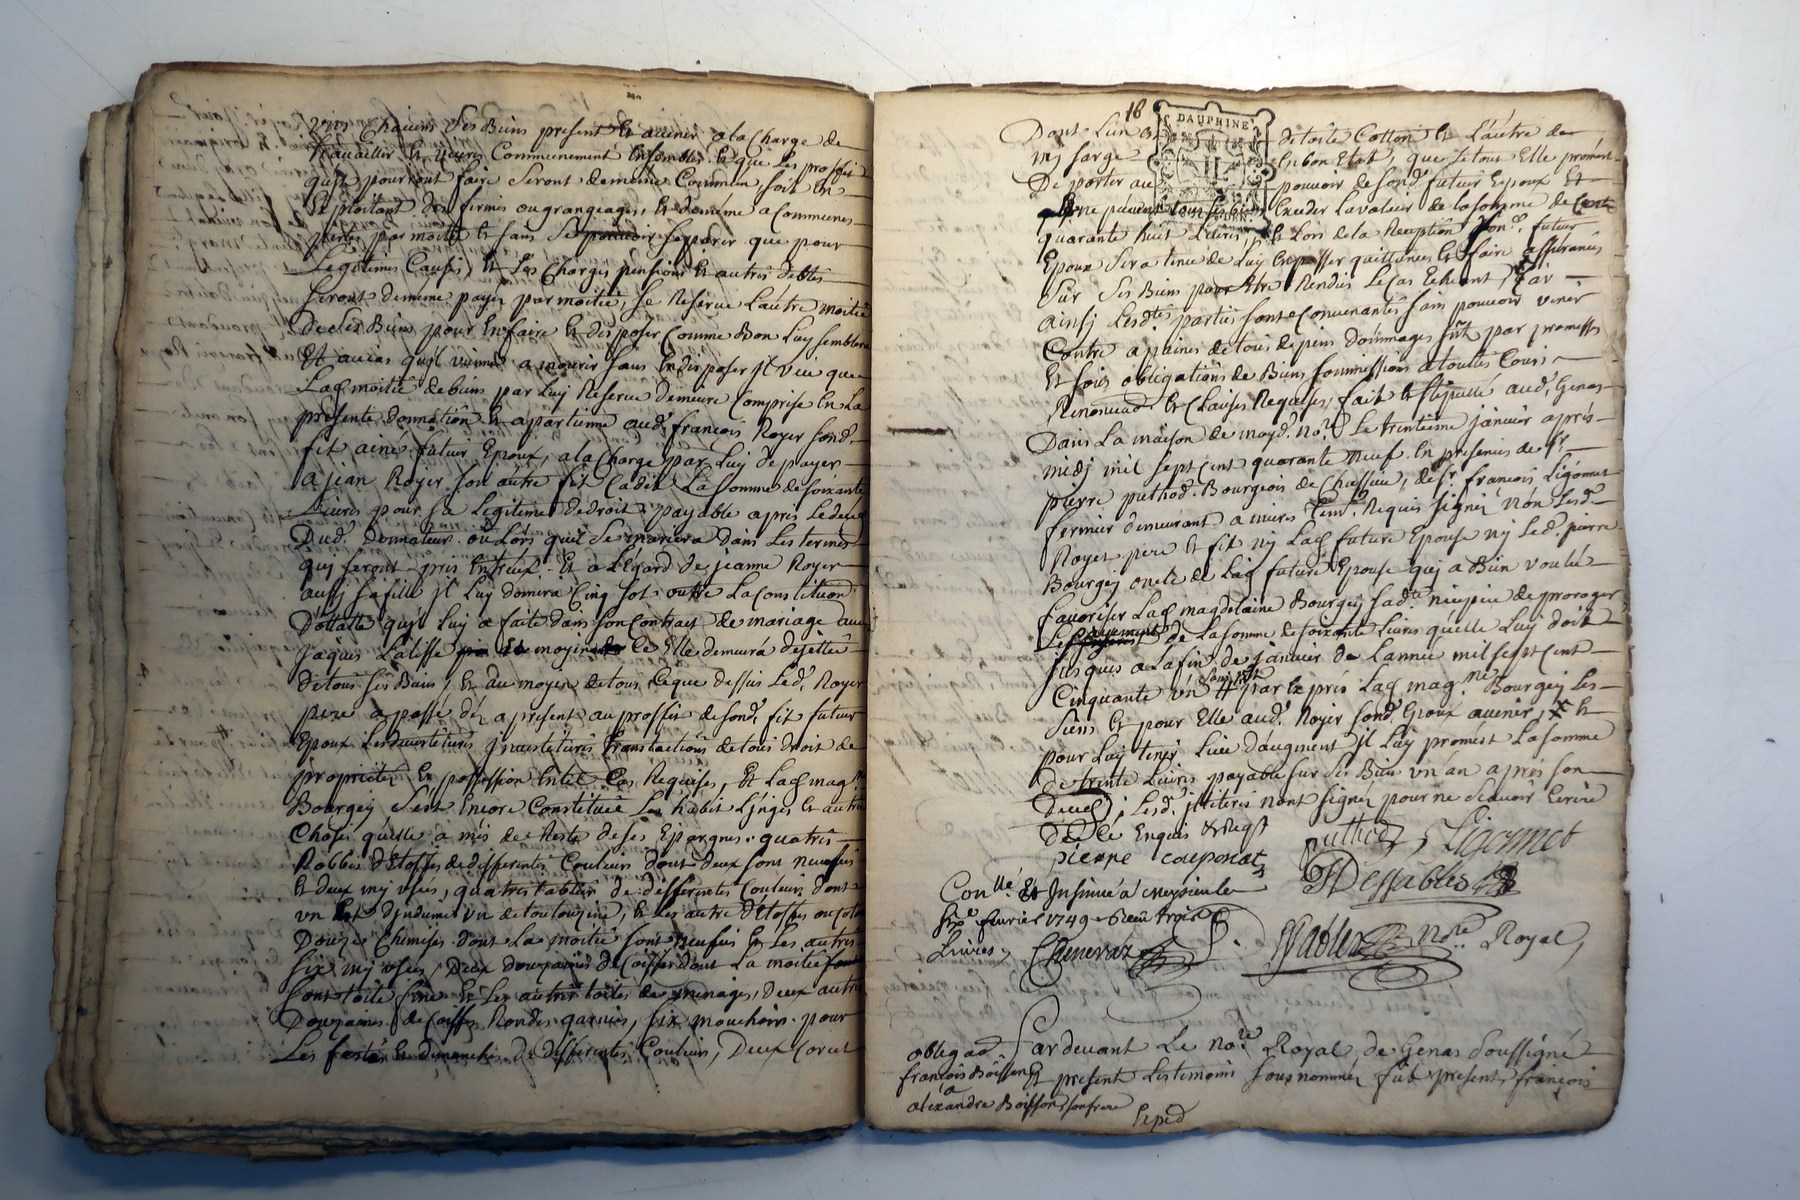 uns Chacuns Ses Biens present Et avenir a la Charge de
travailler Et vivres Communement Ensembles Et que les proffit
quils pourront faire Seront demême Commun soit En
Exploitant des fermes ou grangeages, Et demême a Communes
pertes par moitié Et sans Se pouvoir Separer que pour
Legitimes Causes, Et Les Charges pensions Et autres debtes
Seront demême payés par moitié, Se Reserve Lautre moitié
de Ses Biens pour En faire Et disposer Comme Bon Luy semblera
Et au cas quil vienne a mourir sans En disposer jl veu que
Lad moitié de biens par Luy Reservé demeure Comprise En La
presente donnation Et apartienne aud. françois Royer sond.
fit ainé futur Epoux, a la Charge par Luy de payer
a jean Royer son autre fit Cadet La somme de soixante
Livres pour sa Legitime de droits payable apres Le deces
Dud. Donnateur ou Lors quil Se mariera dans Les termes
quj seront pris Entreux. Et a L'Egard de jeanne Royer
aussj sa fille jl Luy donnera Cinq sol outre La Constitution
Dottalle quil Luy a faite dans son Contract de mariage avec
jaques Lalisse moyenant Ce Elle demeura dejettée
de tous Ses Biens, Et au moyen de tous Ceque dessus Led. Royer
pere a passé des a present au proffit de sond. fit futur
Epoux Les devestitures jnvestitures translactions de tous droit de
proprieté Et possession En tel Cas Requises, Et Lad mag.ne
Bourgey S'est Encore Constitué Ses habit Linges Et autres
Choses quelle a mis de Reste de ses Epargnes. quatres
Robbes d'Etoffes de differentes Couleurs dont deux sont neufves
Et deux my usés, quatres tabliers de differentes Couleurs dont
un Est d'jndienne un de toutouzine, Et Les autre d'Etoffes ou coton
Douze Chemises dont La moitié sont neufves Et Les autres
six my usés, Deux douzaines de Coiffes dont La moitié
sont toile fine Et Les autres toiles de menages, Deux autres
Douzaines de Coiffes Rondes garnies, six mouchoirs pour
Les festes Et dimanches de differentes Couleurs, Deux Corset
18
DAUPHINE
Dont L'un Est de toile Cotton Et L'autre de
my sarge En bon Etat, que Le tout Elle promest
De porter au pouvoir de sond. futur Epoux Et
ne peuvent tous Les biens Exceder La valeur de La somme de Cent
quarante huit Livres, Et Lors de la Reception Son. futur
Epoux Sera tenu de Luy En passer quittances Et faire assurances
Sur Ses Biens pour Etre Rendus Le Cas Echeant Car
ainsj Lesd.tes parties sont Convenantes sans pouvoir venir
Contre a peines de tous depens dommages fait par promesses
Et sous obligations de Biens soumissions a toutes Cours
Renonciaon Et Clauses Requises, fait Et stipullé aud. Genas
Dans La maison de moyd. no.re Le trentieme janvier après
midj mil sept Cent quarante neuf. En presences de sr.
pierre puthod. Bourgeois de Chassieu, de sr. francois Ligonnet
fermier demeurant a mures tem.s Requis signés non Lesd.
Royer pere Et fit nj Lad future Epouse nj Led. pierre
Bourgey oncle de Lad future Epouse quj a Bien voulu
favoriser Lad magdelaine Bourgey sad.te niepce de proroger
Le payement de La somme de soixante Livres quelle Luy doit
jusques a La fin de janvier de Lannée mil sept Cent
Cinquante un sans jnt. par Exprés Lad mag.ne Bourgey Les
siens Et pour Elle aud. Royer sond. Epoux avenir, Et
pour Luy tenir Lieu d'augment jl Luy promest La somme
de trente Livres payable sur Ses Biens un an après son
deced; Lesd. jlliteres n'ont signés pour ne Scavoir Ecrire
de Ce Enquis & Reqs
pierre couponat Puthod, Ligonnet
Con.llé Et Insinué a meysieule DesSables
feurier 1749 Recu trois
Livres, Chenevaz Nore Royal,
obligaõ. Pardevant Le no.re Royal de Genas Soussigné
francois Boisson Et present Les temoins sousnommés fut present, françois
a
alexandre Boisson, son frere